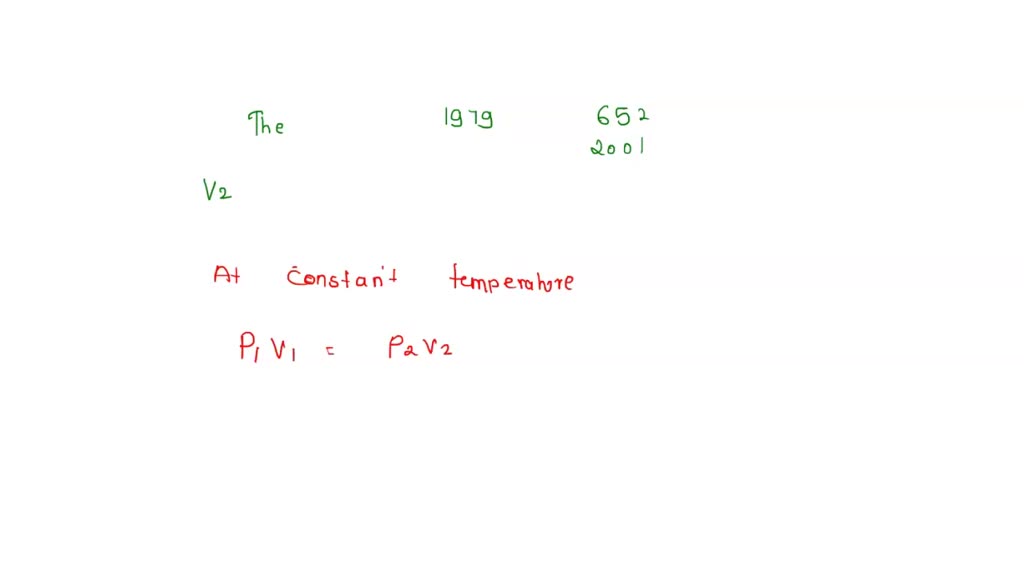 The 1979 652
2001
V2
At constant temperature
P1 V1 = P2 V2